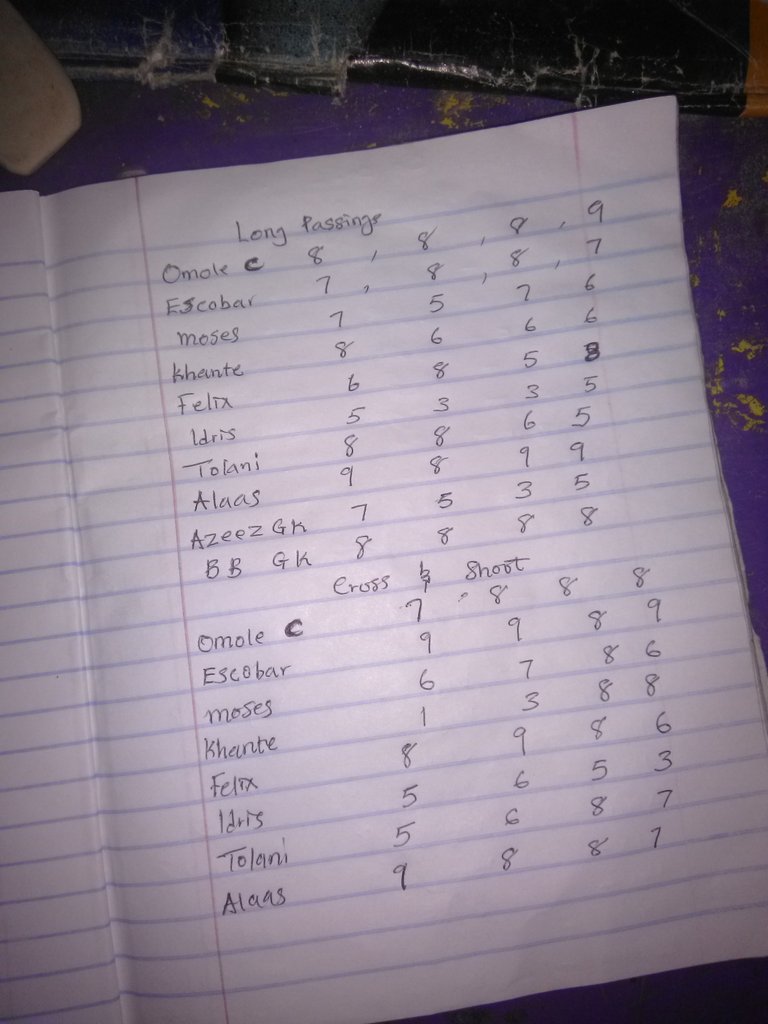 Long Passings
Omole C 8 , 8 , 8 , 9
Escobar 7 , 8 , 8 , 7
moses 7 5 7 6
Khante 8 6 6 6
Felix 6 8 5 8
Idris 5 3 3 5
Tolani 8 8 6 5
Alaas 9 8 9 9
Azeez GK 7 5 3 5
BB GK 8 8 8 8
Cross & Shoot
Omole C 7 8 8 8
Escobar 9 9 8 9
moses 6 7 8 6
Khante 1 3 8 8
Felix 8 9 8 6
Idris 5 6 5 3
Tolani 5 6 8 7
Alaas 9 8 8 7